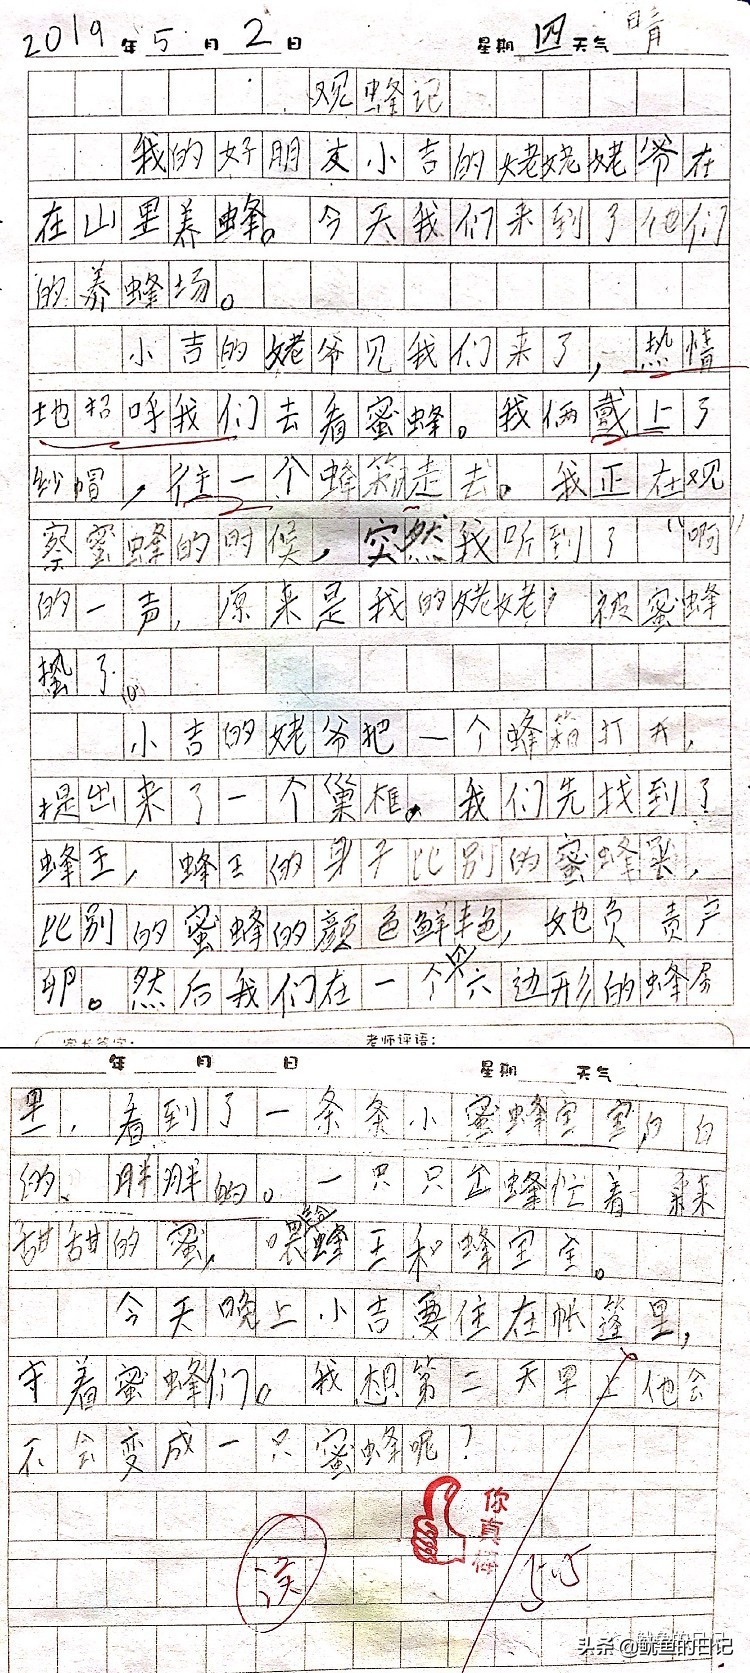 2019年5月2日 星期四天气晴
观蜂记
我的好朋友小吉的姥姥姥爷在
在山里养蜂。今天我们来到了他们
的养蜂场。
小吉的姥爷见我们来了，热情
地招呼我们去看蜜蜂。我俩戴上了
纱帽，往一个蜂箱走去。我正在观
察蜜蜂的时候，突然我听到了“啊”
的一声，原来是我的姥姥 被蜜蜂
蛰了
小吉的姥爷把一个蜂箱打开，
提出来了一个巢框。我们先找到了
蜂王，蜂王的身子比别的蜜蜂
比别的蜜蜂的颜色鲜艳，她负责产
卵。然后我们在一个六边形的蜂房
里，看到了一条条小蜜蜂宝宝，白白
的、胖胖的。一只只 蜂忙着
甜甜的蜜，喂给蜂王和蜂宝宝。
今天晚上小吉要住在帐篷里，
守着蜜蜂们。我想第二天早上他会
不会变成一只蜜蜂呢？
你真棒
家长签字： 老师评语：
年 月 日 星期 天气
头条@鱿鱼的日记